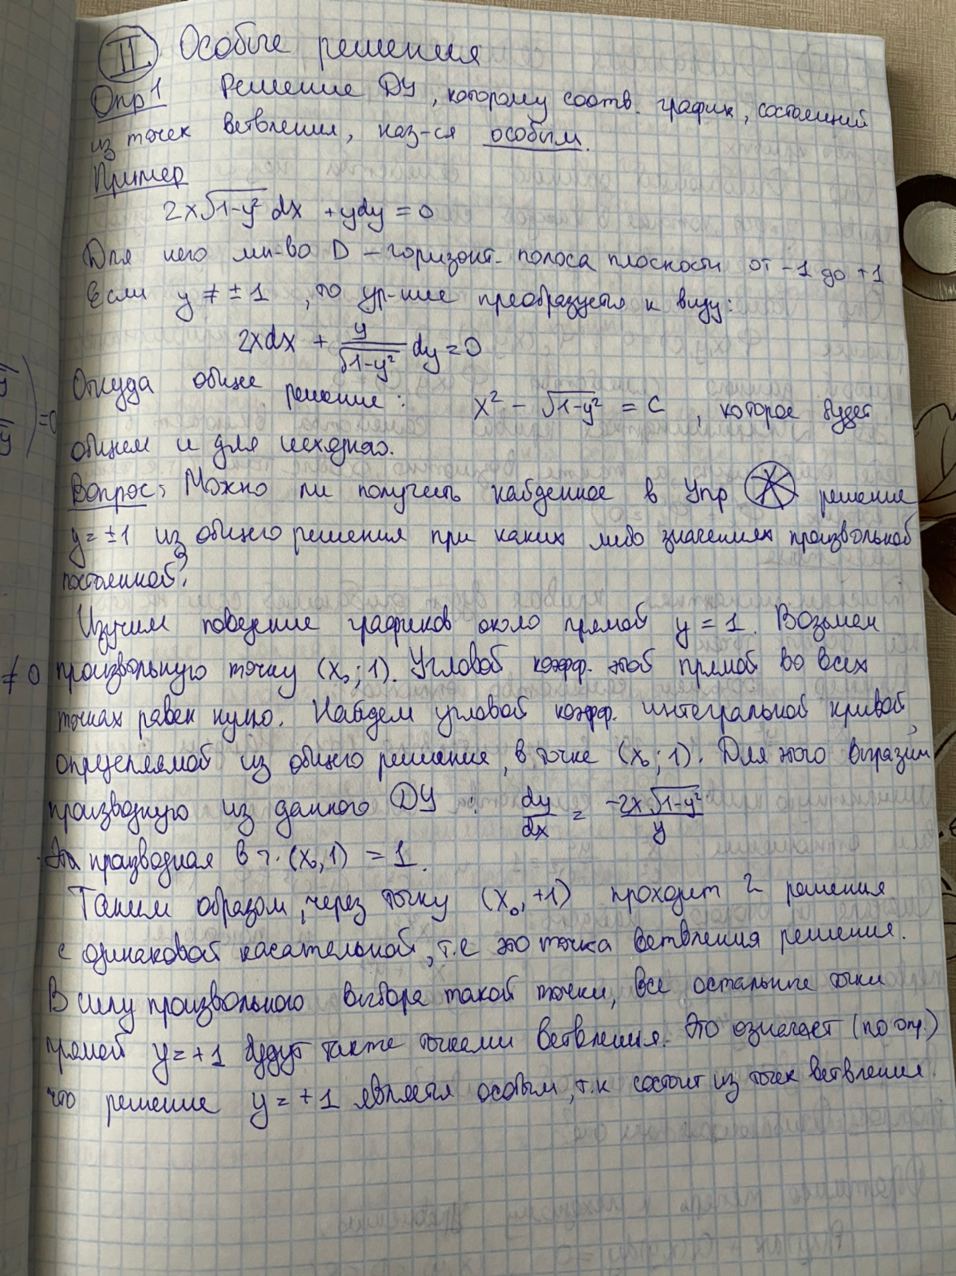 II Особые решения
Опр1 Решение ДУ, которому соотв. график, состоящий
из точек ветвления, наз-ся особым.
Пример
2x√1-y² dx + ydy = 0
Для него мн-во D – горизонт. полоса плоскости от -1 до +1
Если y ≠ ± 1, то ур-ние преобразуется к виду:
2xdx + y/√1-y² dy = 0
Откуда общее решение: x² - √1-y² = C, которое будет
общем и для исходного.
Вопрос: Можно ли получить найденное в Упр решение
y = ±1 из общего решения при каких либо значениях произвольной
постоянной?
Изучим поведение графиков около прямой y = 1. Возьмем
произвольную точку (x₀; 1). Угловой коэфф. этой прямой во всех
точках равен нулю. Найдем угловой коэфф. интегральной кривой,
определяемой из общего решения, в точке (x₀; 1). Для этого выразим
производную из данного ДУ: dy/dx = -2x√1-y²/y
Эта производная в т. (x₀, 1) = 1.
Таким образом, через точку (x₀, +1) проходит 2 решения
с одинаковой касательной, т.е это точка ветвления решения.
В силу произвольного выбора такой точки, все остальные точки
прямой y = +1 будут также точками ветвления. Это означает (по опр.)
что решение y = +1 является особым, т.к состоит из точек ветвления.
=0
≠ 0